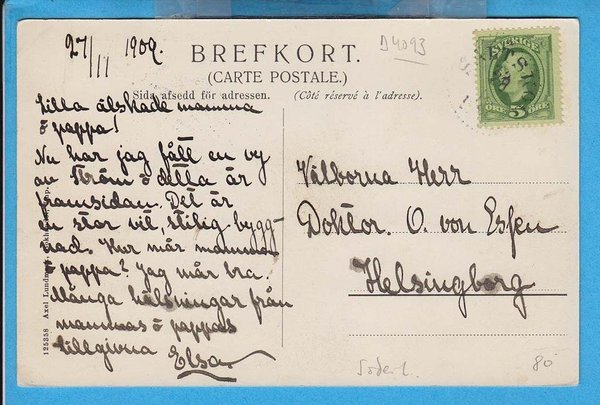 27/11 1909.
D4093
BREFKORT.
(CARTE POSTALE.)
Sida afsedd för adressen.
(Côté réservé à l'adresse).
SVERIGE
5
ÖRE
ÖRE
Lilla älskade mamma
o pappa!
Nu har jag fått en vy
av Ström o detta är
framsidan. Det är
en stor vit, stilig bygg-
nad. Hur mår mamma
o pappa? Jag mår bra.
Många hälsningar från
mammas o pappas
tillgivna Elsa
Välborna Herr
Doktor. O. von Essen
Helsingborg
125358 Axel
Södert.
80